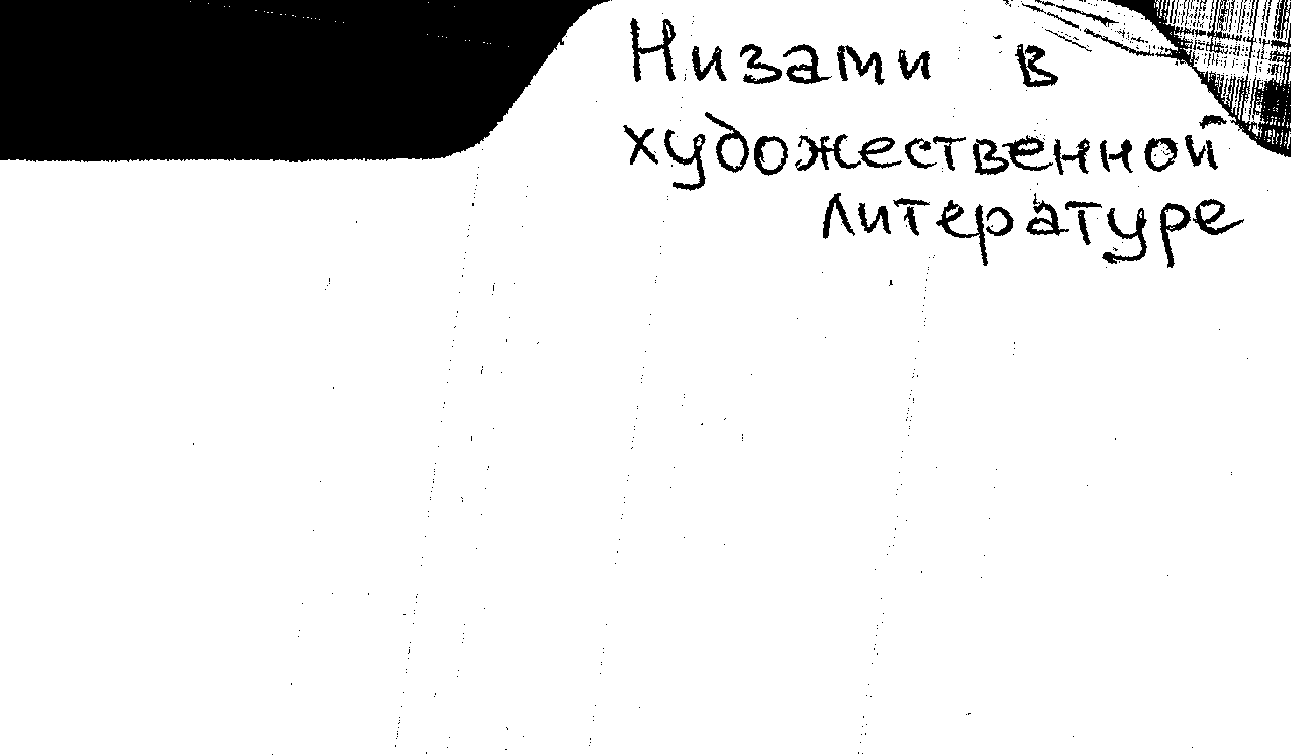 Низами в
художественной
литературе